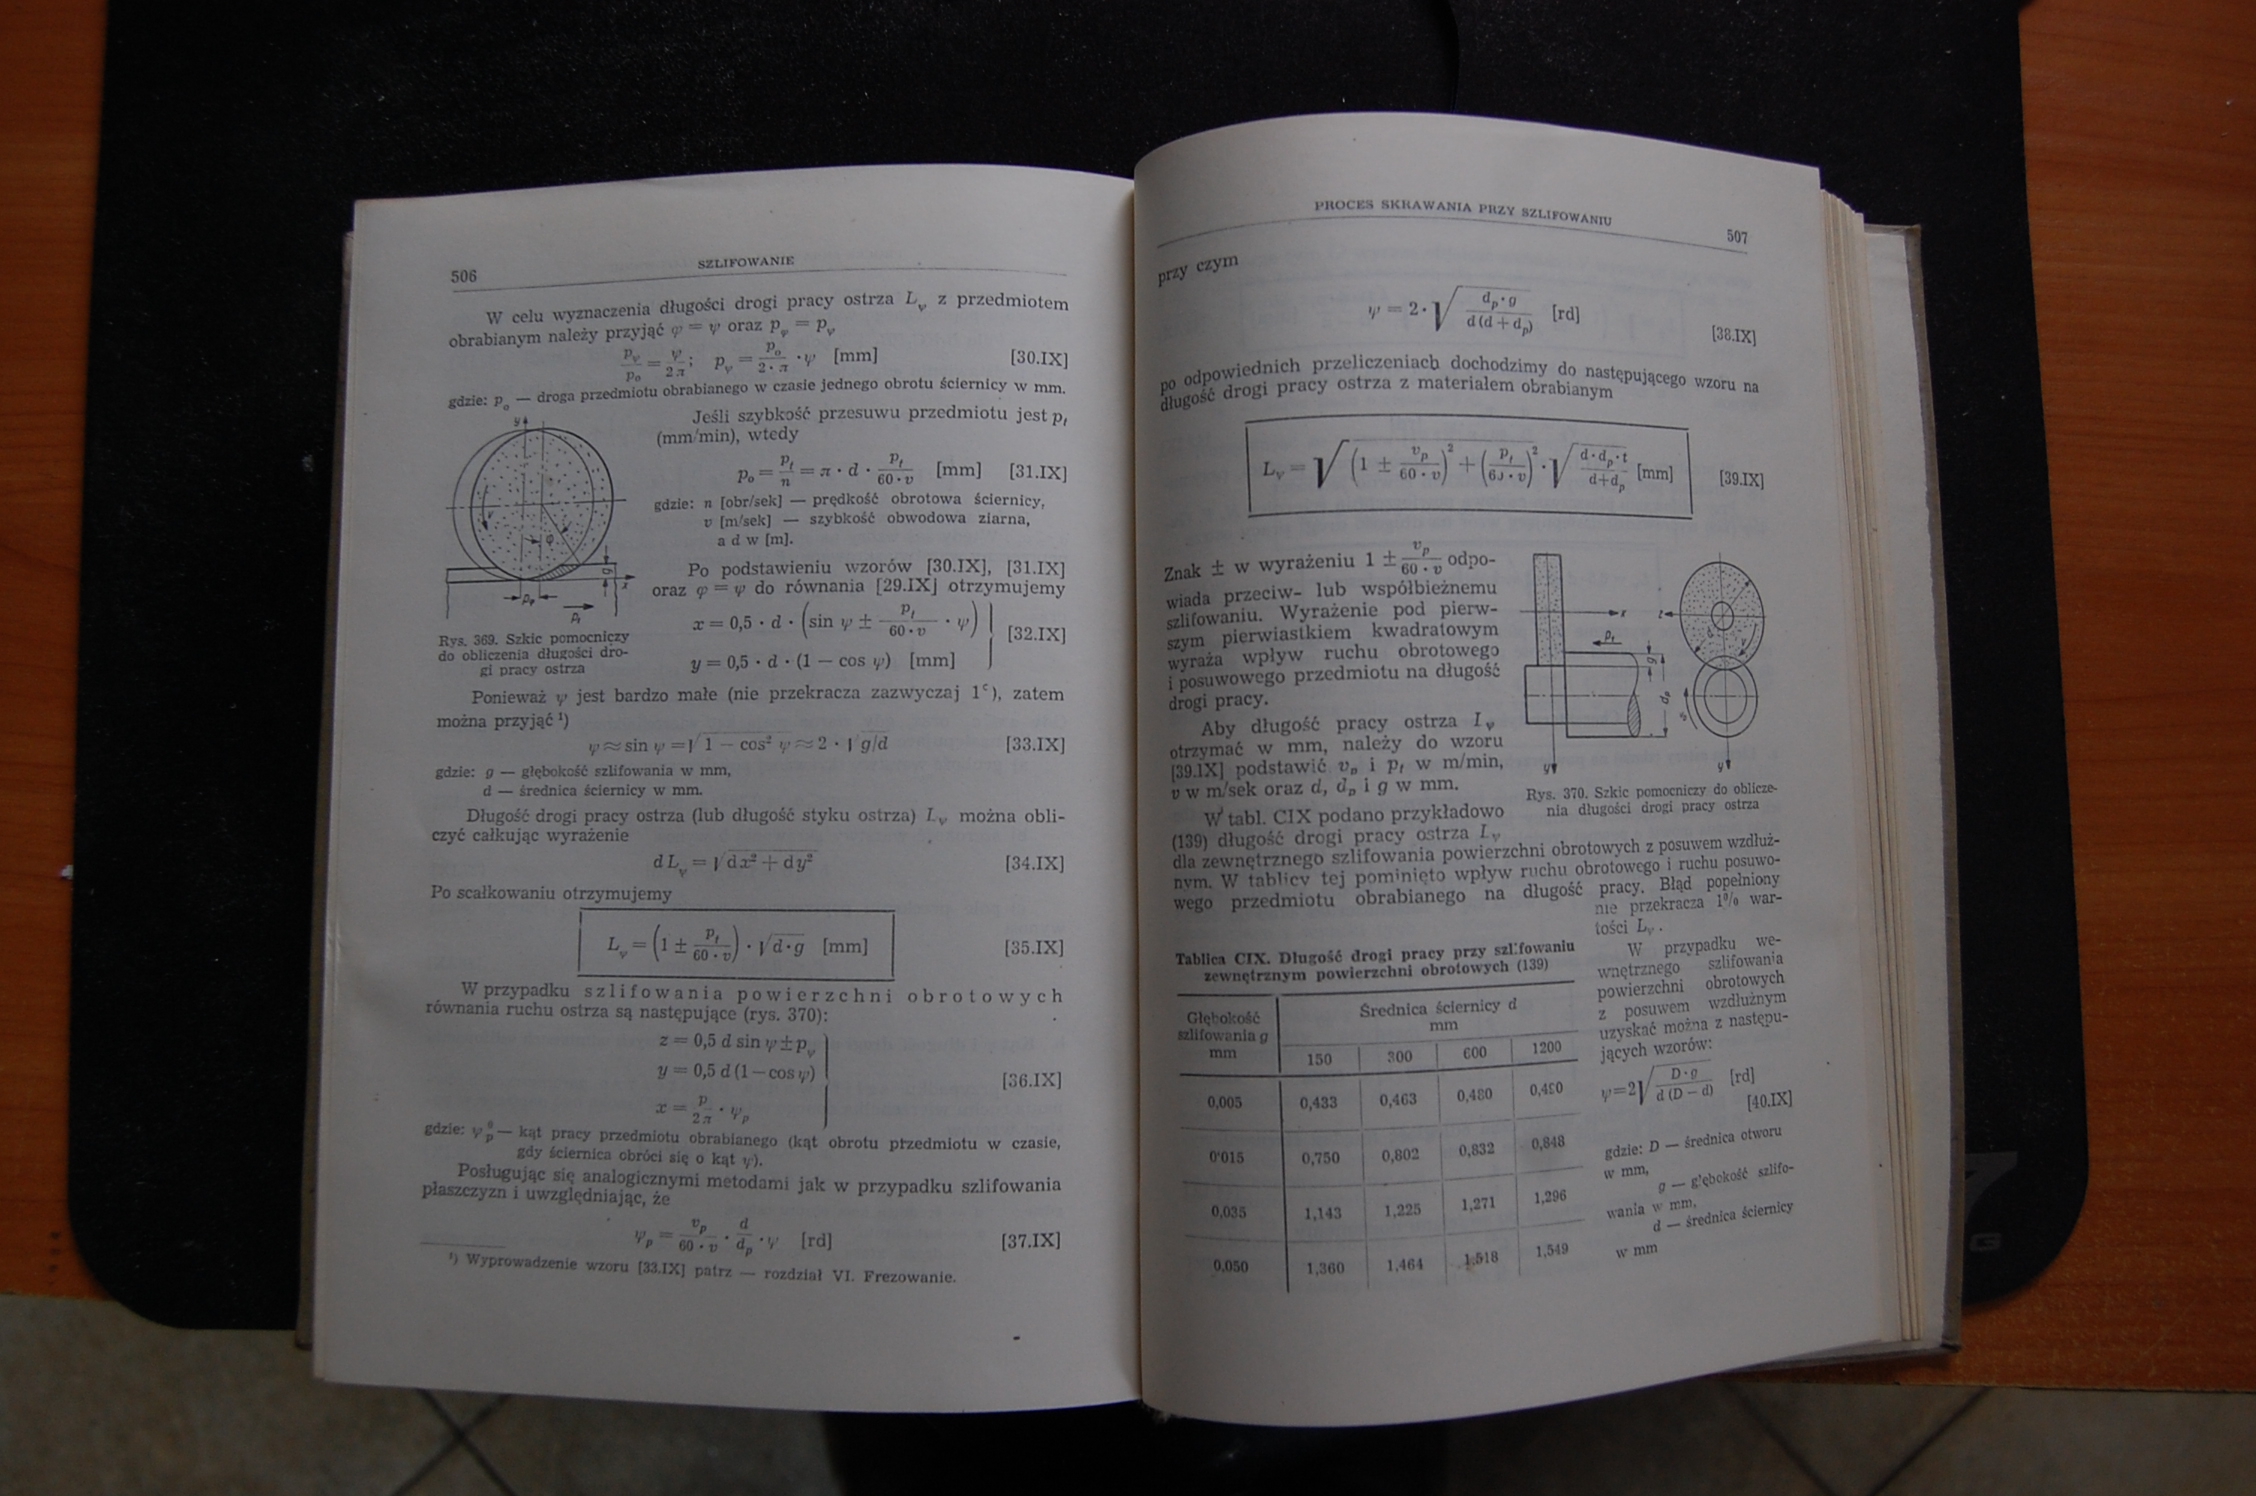 506
SZLIFOWANIE
W celu wyznaczenia długości drogi pracy ostrza Lψ z przedmiotem
obrabianym należy przyjąć φ = ψ oraz pφ = pψ
pψ/p₀ = ψ/2π; pψ = p₀/2·π · ψ [mm] [30.IX]
gdzie: p₀ — droga przedmiotu obrabianego w czasie jednego obrotu ściernicy w mm.
Jeśli szybkość przesuwu przedmiotu jest pₜ
(mm/min), wtedy
p₀ = pₜ/n = π · d · pₜ/60·v [mm] [31.IX]
gdzie: n [obr/sek] — prędkość obrotowa ściernicy,
v [m/sek] — szybkość obwodowa ziarna,
a d w [m].
Po podstawieniu wzorów [30.IX], [31.IX]
oraz φ = ψ do równania [29.IX] otrzymujemy
x = 0,5 · d · (sin ψ ± pₜ/60·v · ψ)
y = 0,5 · d · (1 — cos ψ) [mm] [32.IX]
y
v
φ
g
x
pφ
pₜ
Rys. 369. Szkic pomocniczy
do obliczenia długości dro-
gi pracy ostrza
Ponieważ ψ jest bardzo małe (nie przekracza zazwyczaj 1°), zatem
można przyjąć ¹)
ψ ≈ sin ψ = √1 — cos² ψ ≈ 2 · √g/d [33.IX]
gdzie: g — głębokość szlifowania w mm,
d — średnica ściernicy w mm.
Długość drogi pracy ostrza (lub długość styku ostrza) Lψ można obli-
czyć całkując wyrażenie
dLψ = √dx² + dy² [34.IX]
Po scałkowaniu otrzymujemy
Lψ = (1 ± pₜ/60·v) · √d·g [mm] [35.IX]
W przypadku szlifowania powierzchni obrotowych
równania ruchu ostrza są następujące (rys. 370):
z = 0,5 d sin ψ ± pψ
y = 0,5 d (1 — cos ψ)
x = p/2π · ψₚ [36.IX]
gdzie: ψₚ° — kąt pracy przedmiotu obrabianego (kąt obrotu przedmiotu w czasie,
gdy ściernica obróci się o kąt ψ).
Posługując się analogicznymi metodami jak w przypadku szlifowania
płaszczyzn i uwzględniając, że
ψₚ = vₚ/60·v · d/dₚ · ψ [rd] [37.IX]
¹) Wyprowadzenie wzoru [33.IX] patrz — rozdział VI. Frezowanie.
PROCES SKRAWANIA PRZY SZLIFOWANIU
507
przy czym
ψ = 2 · √dₚ·g/d(d + dₚ) [rd] [38.IX]
po odpowiednich przeliczeniach dochodzimy do następującego wzoru na
długość drogi pracy ostrza z materiałem obrabianym
Lψ = √(1 ± vₚ/60·v)² + (pₜ/60·v)² · √d·dₚ·t/d+dₚ [mm] [39.IX]
Znak ± w wyrażeniu 1 ± vₚ/60·v odpo-
wiada przeciw- lub współbieżnemu
szlifowaniu. Wyrażenie pod pierw-
szym pierwiastkiem kwadratowym
wyraża wpływ ruchu obrotowego
i posuwowego przedmiotu na długość
drogi pracy.
Aby długość pracy ostrza Lψ
otrzymać w mm, należy do wzoru
[39.IX] podstawić vₚ i pₜ w m/min,
v w m/sek oraz d, dₚ i g w mm.
x
z
pₜ
g
dₚ
v
y
y
Rys. 370. Szkic pomocniczy do oblicze-
nia długości drogi pracy ostrza
W tabl. CIX podano przykładowo
(139) długość drogi pracy ostrza Lψ
dla zewnętrznego szlifowania powierzchni obrotowych z posuwem wzdłuż-
nym. W tablicy tej pominięto wpływ ruchu obrotowego i ruchu posuwo-
wego przedmiotu obrabianego na długość pracy. Błąd popełniony
nie przekracza 1% war-
tości Lψ.
Tablica CIX. Długość drogi pracy przy szlifowaniu
zewnętrznym powierzchni obrotowych (139)
Głębokość
szlifowania g
mm
Średnica ściernicy d
mm
150 300 600 1200
0,005 0,433 0,463 0,480 0,490
0'015 0,750 0,802 0,832 0,848
0,035 1,143 1,225 1,271 1,296
0,050 1,360 1,464 1,518 1,549
W przypadku we-
wnętrznego szlifowania
powierzchni obrotowych
z posuwem wzdłużnym
uzyskać można z następu-
jących wzorów:
ψ=2√D·g/d(D — d) [rd]
[40.IX]
gdzie: D — średnica otworu
w mm,
g — głębokość szlifo-
wania w mm,
d — średnica ściernicy
w mm